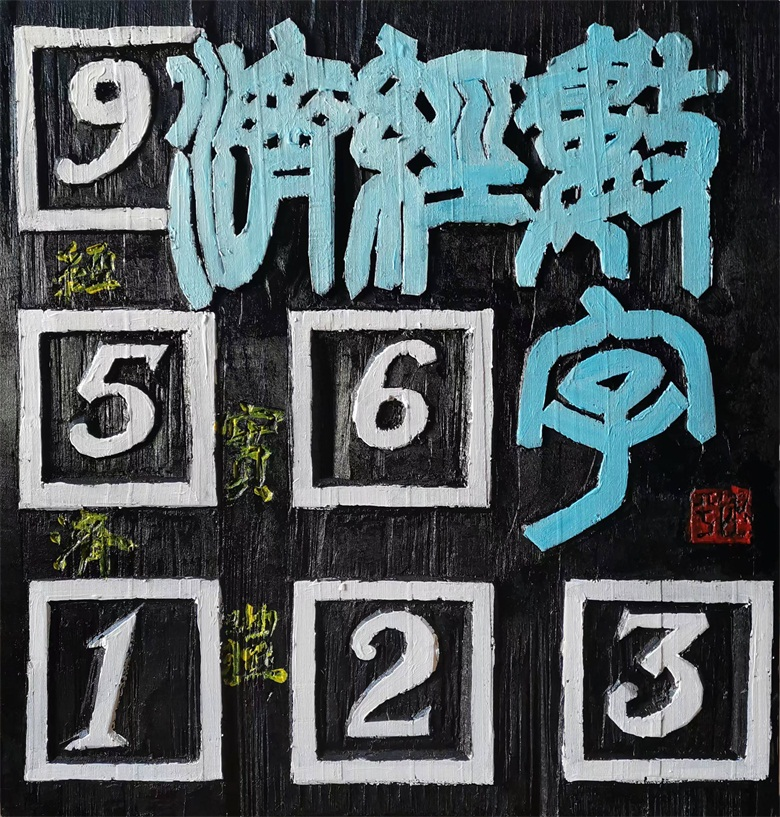 數字
經
濟
9
5 6
1 2 3
實
經
濟